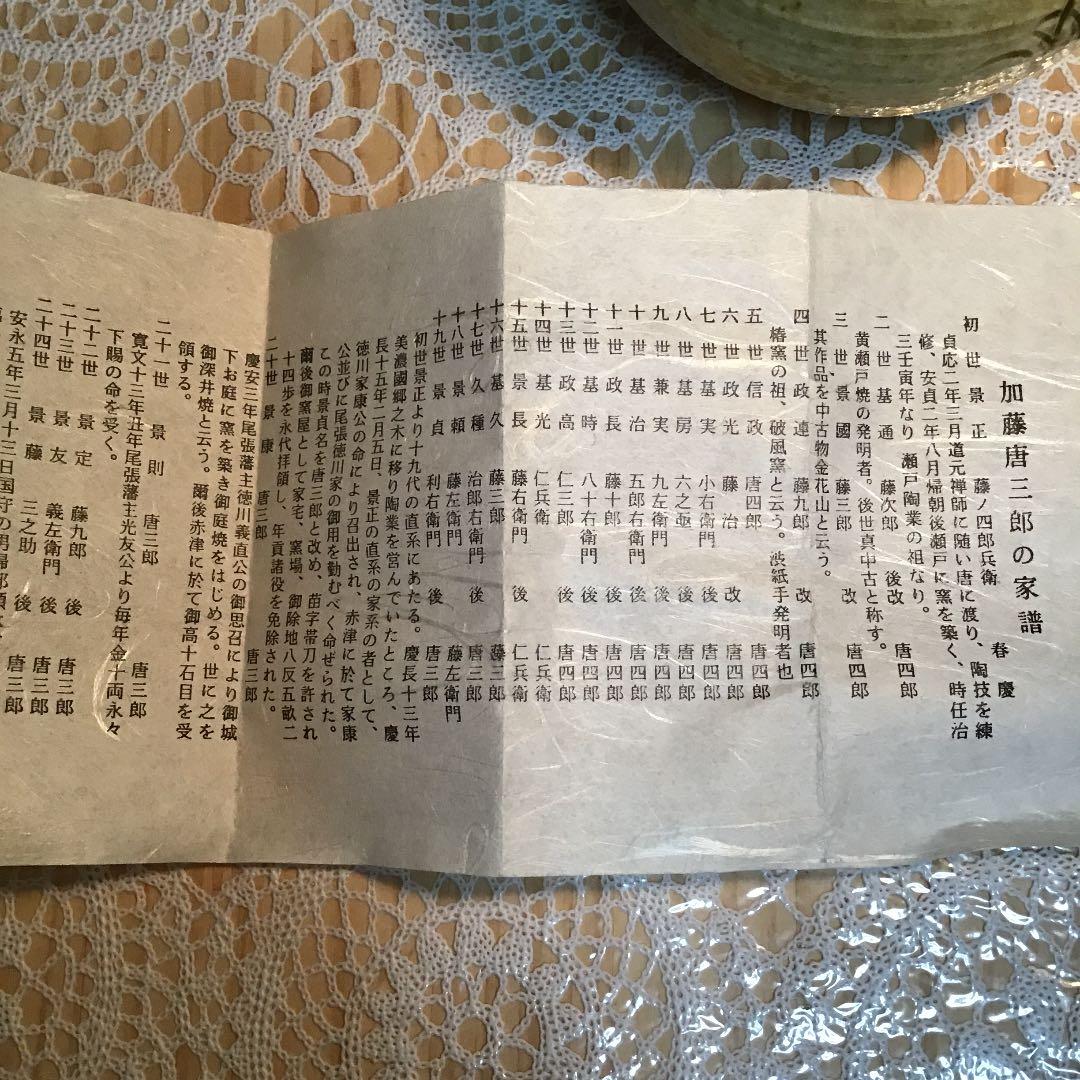 加藤唐三郎の家譜
初世 景正 藤ノ四郎兵衛 春慶
貞応二年三月道元禅師に随い唐に渡り、陶技を練
修、安貞二年八月帰朝後瀬戸に窯を築く、時任治
三壬寅年なり 瀬戸陶業の祖なり。
二世 基通 藤次郎 後改 唐四郎
黄瀬戸焼の発明者。後世真中古と称す。
三世 景國 藤三郎 改 唐四郎
其作品を中古物金花山と云う。
四世 政連 藤九郎 改 唐四郎
椿窯の祖、破風窯と云う。渋紙手発明者也
五世 信政 唐四郎 唐四郎
六世 政光 藤治 改 唐四郎
七世 基実 小右衛門 後 唐四郎
八世 基房 六之亟 後 唐四郎
九世 兼実 九左衛門 後 唐四郎
十世 基治 五郎右衛門 後 唐四郎
十一世 基長 藤十郎 後 唐四郎
十二世 基時 八十右衛門 後 唐四郎
十三世 政高 仁三郎 後 唐四郎
十四世 基光 仁兵衛 仁兵衛
十五世 景長 藤右衛門 後 仁兵衛
十六世 基久 藤三郎 藤三郎
十七世 久種 治郎右衛門 後 唐三郎
十八世 景頼 藤左衛門 藤左衛門
十九世 景貞 利右衛門 後 唐三郎
初世景正より十九代の直系にあたる。慶長十三年
美濃國郷之木に移り陶業を営んでいたところ、慶
長十五年二月五日、景正の直系の家系の者として、
徳川家康公の命により召出され、赤津に於て家康
公並びに尾張徳川家の御用を勤むべく命ぜられた。
この時景貞名を唐三郎と改め、苗字帯刀を許され
爾後御窯屋として家宅、窯場、御除地八反五畝二
十四歩を永代拝領し、年貢諸役を免除された。
二十世 景康 唐三郎 唐三郎
慶安三年尾張藩主徳川義直公の御思召により御城
下お庭に窯を築き御庭焼をはじめる。世に之を
御深井焼と云う。爾後赤津に於て御高十石目を受
領する。
二十一世 景則 唐三郎 唐三郎
寛文十三年丑年尾張藩主光友公より毎年金十両永々
下賜の命を受く。
二十二世 景定 藤九郎 後 唐三郎
二十三世 景友 義左衛門 後 唐三郎
二十四世 景藤 三之助 後 唐三郎
安永五年三月十三日国守の男